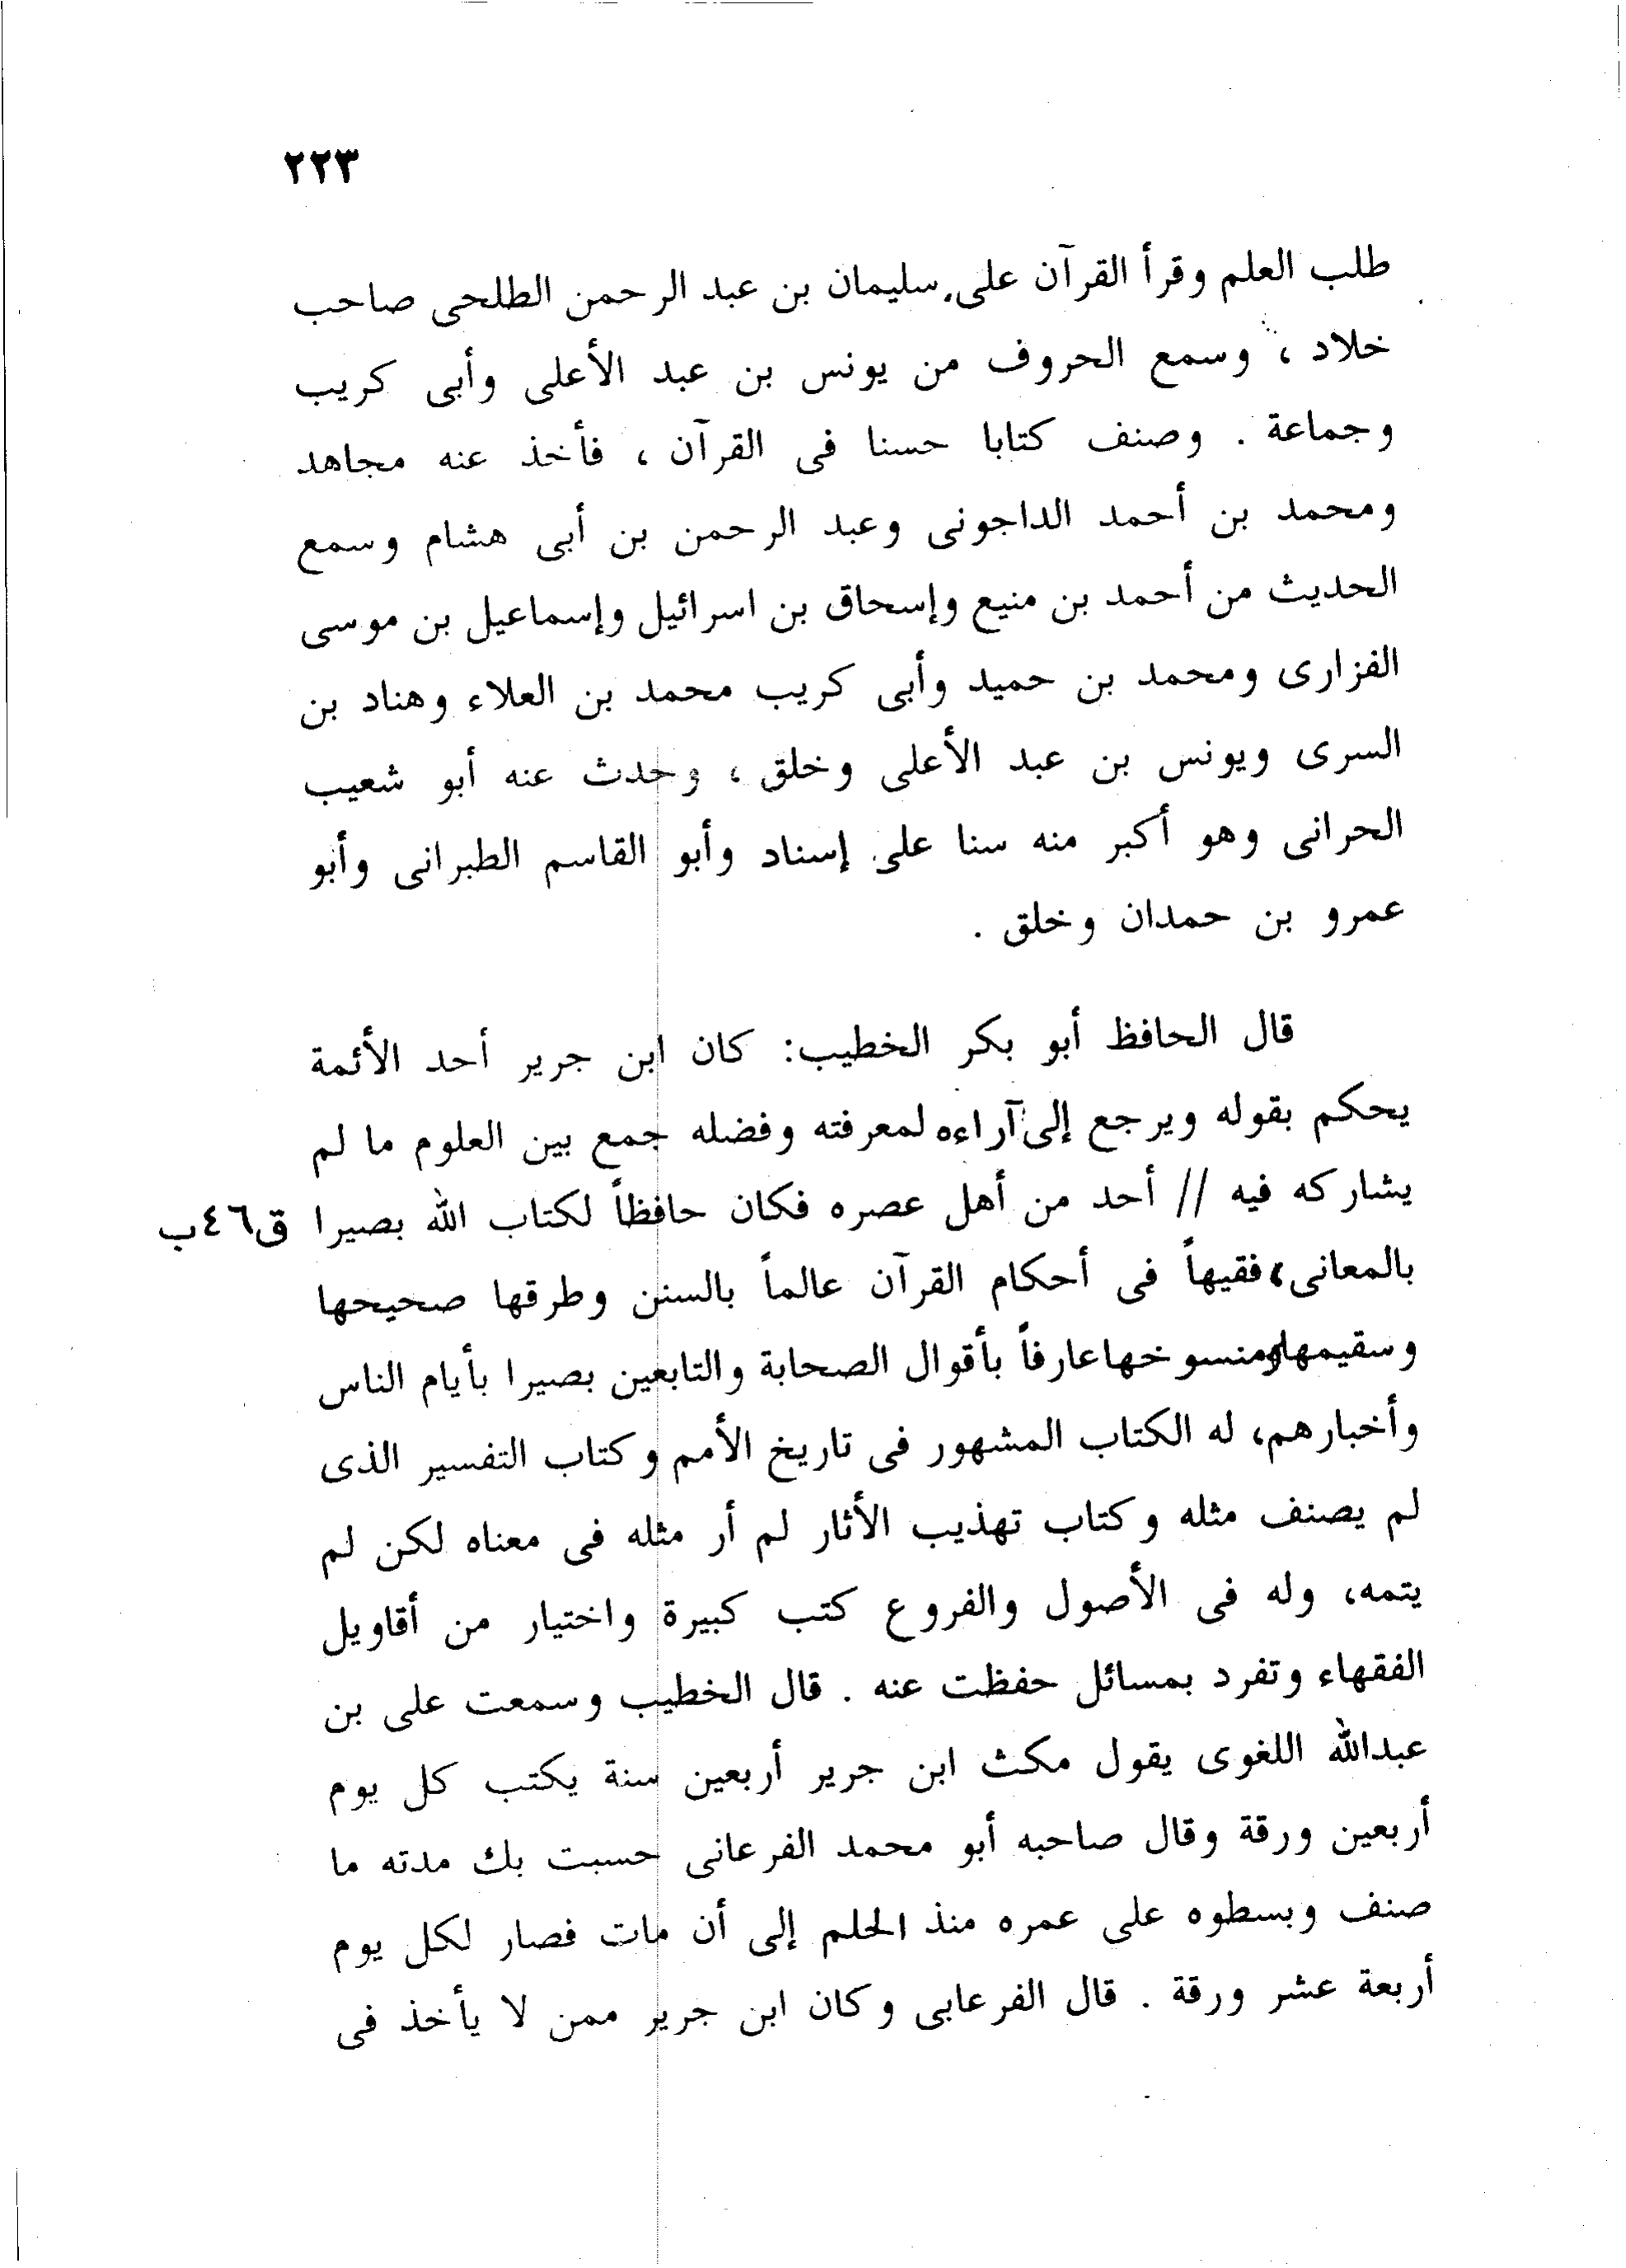 ٢٢٣
طلب العلم وقرأ القرآن على سليمان بن عبد الرحمن الطلحى صاحب
خلاد ، وسمع الحروف من يونس بن عبد الأعلى وأبى كريب
وجماعة . وصنف كتابا حسنا فى القرآن ، فأخذ عنه مجاهد
ومحمد بن أحمد الداجونى وعبد الرحمن بن أبى هشام وسمع
الحديث من أحمد بن منيع وإسحاق بن اسرائيل وإسماعيل بن موسى
الفزارى ومحمد بن حميد وأبى كريب محمد بن العلاء وهناد بن
السرى ويونس بن عبد الأعلى وخلق ، وحدث عنه أبو شعيب
الحرانى وهو أكبر منه سنا على إسناد وأبو القاسم الطبرانى وأبو
عمرو بن حمدان وخلق .
قال الحافظ أبو بكر الخطيب: كان ابن جرير أحد الأئمة
يحكم بقوله ويرجع إلى آراءه لمعرفته وفضله جمع بين العلوم ما لم
يشاركه فيه // أحد من أهل عصره فكان حافظاً لكتاب الله بصيرا ق٤٦ب
بالمعانى، فقيهاً فى أحكام القرآن عالماً بالسنن وطرقها صحيحها
وسقيمها ومنسوخها عارفاً بأقوال الصحابة والتابعين بصيرا بأيام الناس
وأخبارهم، له الكتاب المشهور فى تاريخ الأمم وكتاب التفسير الذى
لم يصنف مثله وكتاب تهذيب الأثار لم أر مثله فى معناه لكن لم
يتمه، وله فى الأصول والفروع كتب كبيرة واختيار من أقاويل
الفقهاء وتفرد بمسائل حفظت عنه . قال الخطيب وسمعت على بن
عبدالله اللغوى يقول مكث ابن جرير أربعين سنة يكتب كل يوم
أربعين ورقة وقال صاحبه أبو محمد الفرعانى حسبت بك مدته ما
صنف وبسطوه على عمره منذ الحلم إلى أن مات فصار لكل يوم
أربعة عشر ورقة . قال الفرعابى وكان ابن جرير ممن لا يأخذ فى